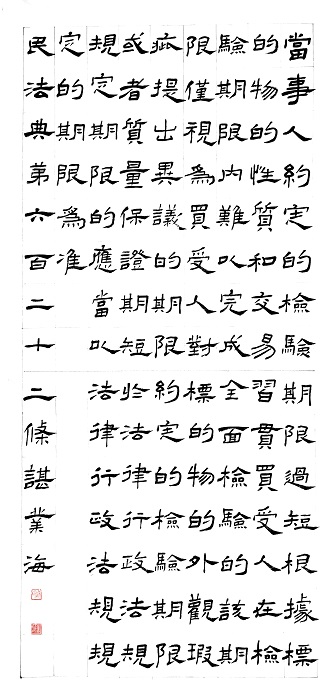 當事人約定的檢驗期限過短根據標
的物的性質和交易習貫買受人在檢
驗期限內難以完成全面檢驗的該期
限僅視為買受人對標的物的外觀瑕
疵提出異議的期限約定的檢驗期限
或者質量保證期短於法律行政法規
規定期限的應當以法律行政法規規
定的期限為准
民法典第六百二十二條諶業海